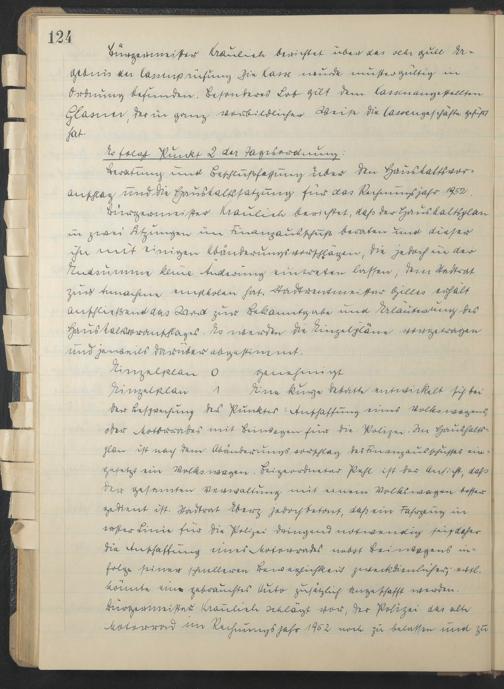 124
Bürgermeister Kraulich berichtet über das sehr gute Er-
gebnis der Cassenprüfung. Die Casse wurde mustergültig in
Ordnung befunden. Besonderes Lob gilt dem Cassenangestellten
Glasner, der in ganz vorbildlicher Weise die Cassengeschäfte geführt
hat.
Es folgt Punkt 2 der Tagesordnung:
Beratung und Beschlußfassung über den Haushaltsvor-
anschlag und die Haushaltssatzung für das Rechnungsjahr 1952.
Bürgermeister Kraulich berichtet, daß der Haushaltsplan
in zwei Sitzungen im Finanzausschuß beraten und dieser
ihn mit einigen Abänderungsvorschlägen, die jedoch in der
Endsumme keine Änderung eintreten lassen, dem Stadtrat
zur Annahme empfohlen hat. Stadtrentmeister Gilles erhält
anschließend das Wort zur Bekanntgabe und Erläuterung des
Haushaltsvoranschlages. Es werden die Einzelpläne vorgetragen
und jeweils darüber abgestimmt.
Einzelplan 0 genehmigt
Einzelplan 1 Eine kurze Debatte entwickelt sich bei
der Besprechung des Punktes: Anschaffung eines Volkswagens
oder Motorrades mit Beiwagen für die Polizei. Im Haushalts-
plan ist nach dem Abänderungsvorschlag des Finanzausschusses ein-
gesetzt ein Volkswagen. Beigeordneter Pohl ist der Ansicht, daß
der gesamten Verwaltung mit einem Volkswagen besser
gedient ist. Stadtrat jedoch betont, daß ein Fahrzeug in
erster Linie für die Polizei dringend notwendig sei, daher
die Anschaffung eines Motorrades nebst Beiwagens in-
folge seiner schnelleren Beweglichkeit zweckdienlicher, evtl.
könnte ein gebrauchtes Auto zusätzlich angeschafft werden.
Bürgermeister Kraulich schlägt vor, der Polizei das alte
Motorrad im Rechnungsjahr 1952 noch zu belassen und zu